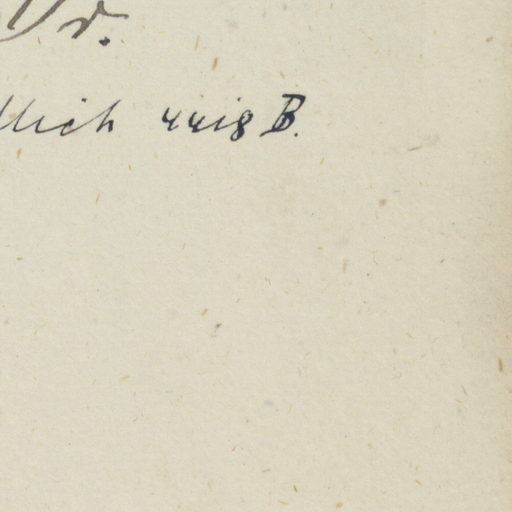 Dr.
llich 4418 B.